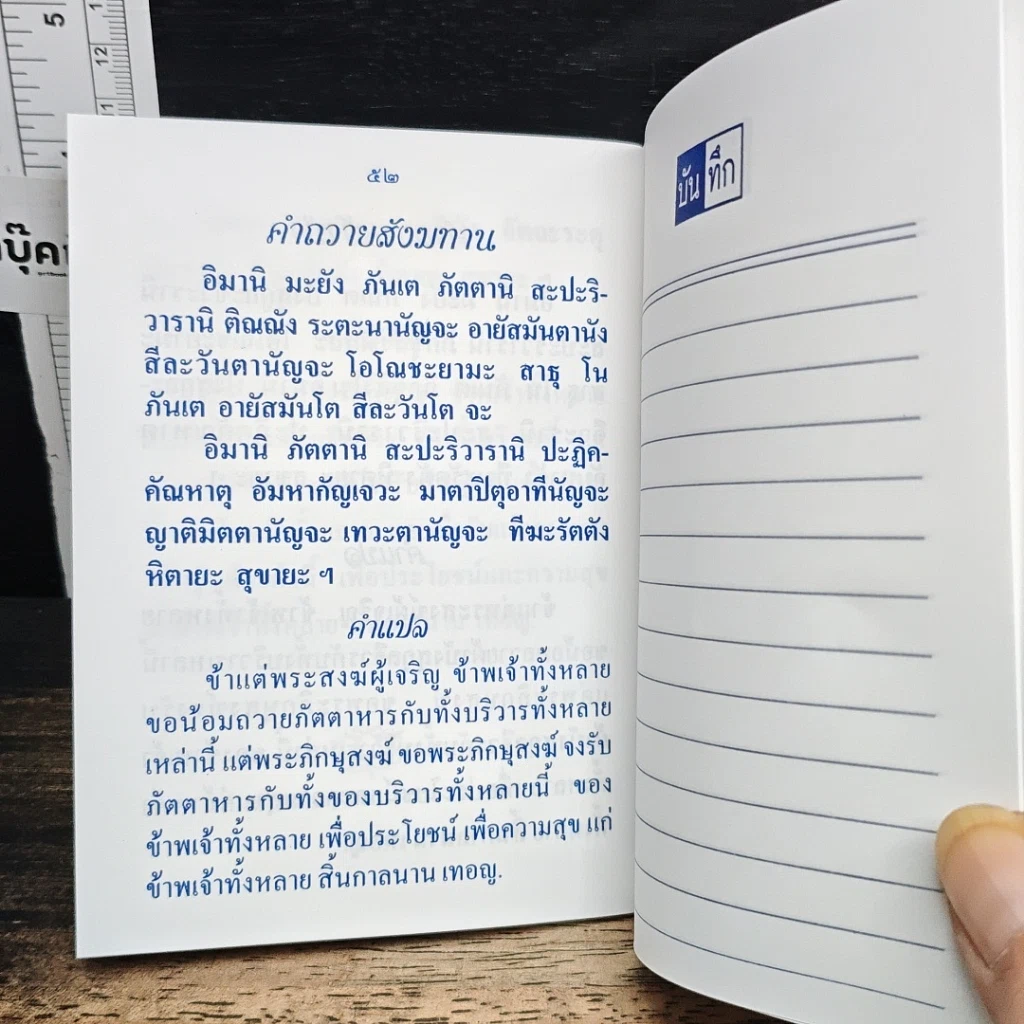 ๕๒
คำถวายสังฆทาน
อิมานิ มะยัง ภันเต ภัตตานิ สะปะริ-
วารานิ ติณณัง ระตะนานัญจะ อายัสมันตานัง
สีละวันตานัญจะ โอโณชะยามะ สาธุ โน
ภันเต อายัสมันโต สีละวันโต จะ
อิมานิ ภัตตานิ สะปะริวารานิ ปะฏิค-
คัณหาตุ อัมหากัญเจวะ มาตาปิตุอาทีนัญจะ
ญาติมิตตานัญจะ เทวะตานัญจะ ทีฆะรัตตัง
หิตายะ สุขายะ ฯ
คำแปล
ข้าแต่พระสงฆ์ผู้เจริญ ข้าพเจ้าทั้งหลาย
ขอน้อมถวายภัตตาหารกับทั้งบริวารทั้งหลาย
เหล่านี้ แต่พระภิกษุสงฆ์ ขอพระภิกษุสงฆ์ จงรับ
ภัตตาหารกับทั้งของบริวารทั้งหลายนี้ ของ
ข้าพเจ้าทั้งหลาย เพื่อประโยชน์ เพื่อความสุข แก่
ข้าพเจ้าทั้งหลาย สิ้นกาลนาน เทอญ.
บันทึก
5
12
11